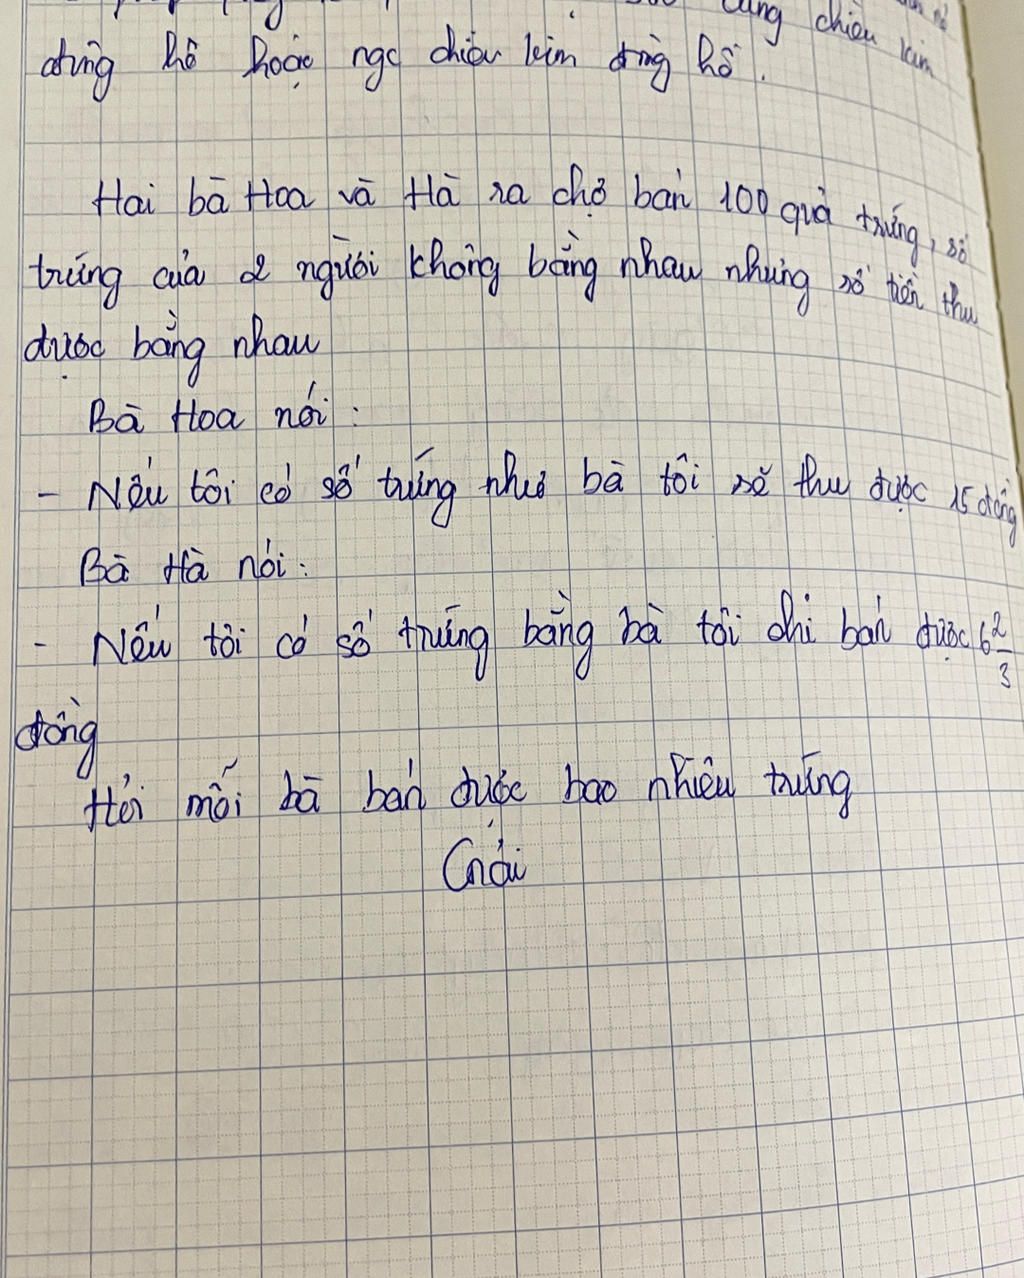 cùng chiều kim
đồng hồ hoặc ngc chiều kim đồng hồ.
Hai bà Hoa và Hà ra chợ bán 100 quả trứng, số
trứng của 2 người không bằng nhau nhưng số tiền thu
được bằng nhau
Bà Hoa nói :
- Nếu tôi có số trứng như bà tôi sẽ thu được 15 đồng
Bà Hà nói :
- Nếu tôi có số trứng bằng bà tôi chỉ bán được 6 2/3
đồng
Hỏi mỗi bà bán được bao nhiêu trứng
Giải